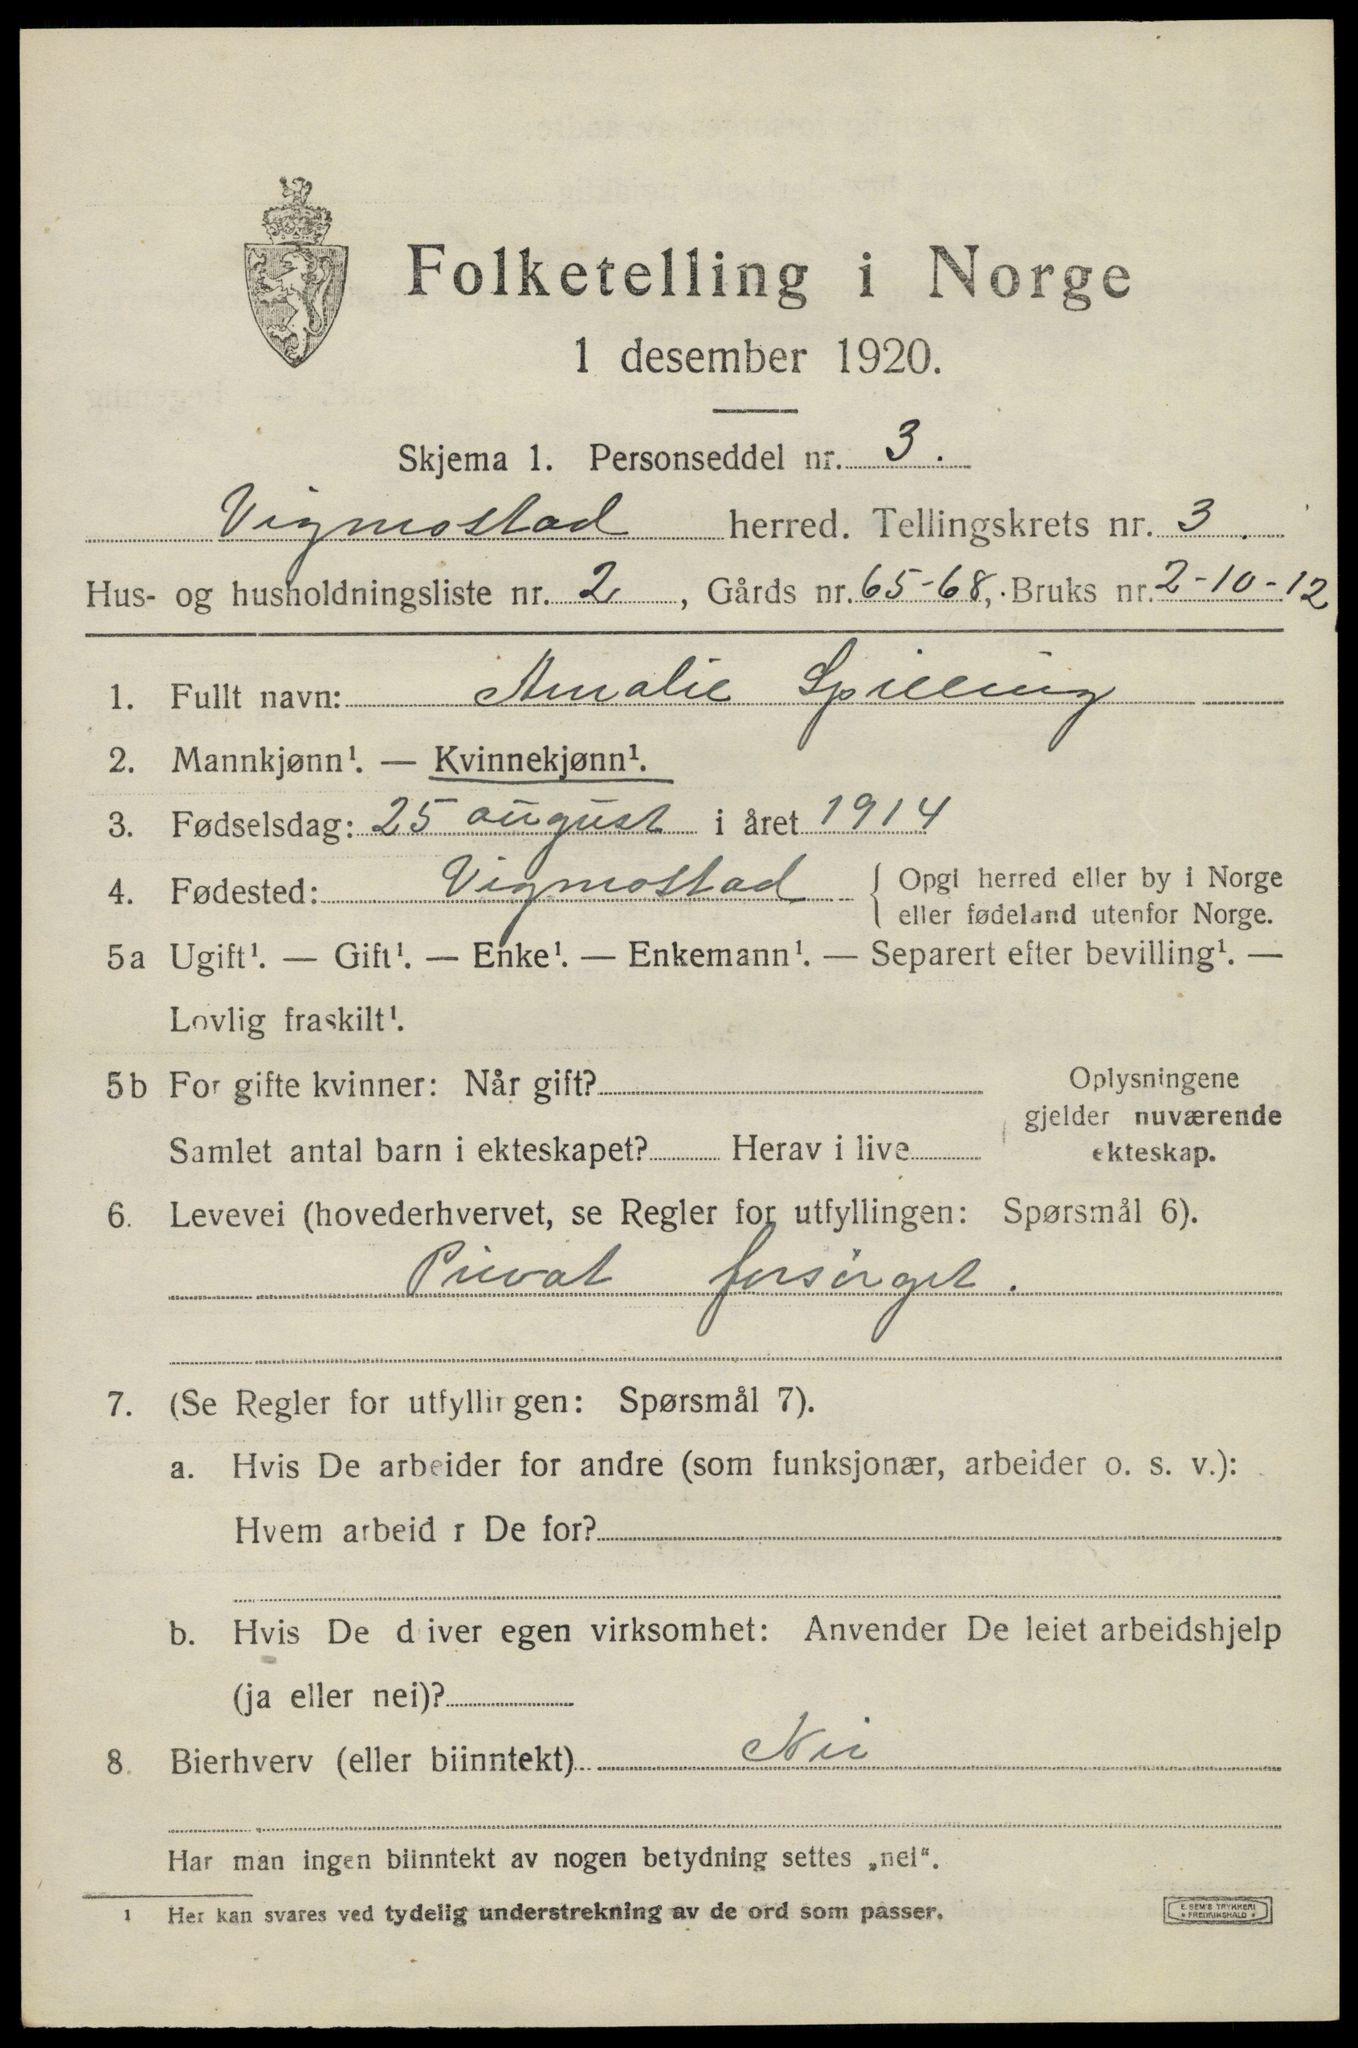 Folketelling i Norge
1 desember 1920.
Skjema 1. Personseddel nr. 3.
Vigmostad herred. Tellingskrets nr. 3.
Hus- og husholdningsliste nr. 2, Gårds nr. 65-68, Bruks nr. 2-10-12
1. Fullt navn: Amalie Spilling
2. Mannkjønn¹. — Kvinnekjønn¹.
3. Fødselsdag: 25 august i året 1914
4. Fødested: Vigmostad { Opgi herred eller by i Norge
eller fødeland utenfor Norge.
5a Ugift¹. — Gift¹. — Enke¹. — Enkemann¹. — Separert efter bevilling¹. —
Lovlig fraskilt¹.
5b For gifte kvinner: Når gift? Oplysningene
gjelder nuværende
Samlet antal barn i ekteskapet? Herav i live ekteskap.
6. Levevei (hovederhvervet, se Regler for utfyllingen: Spørsmål 6).
Privat forsørget.
7. (Se Regler for utfyllingen: Spørsmål 7).
a. Hvis De arbeider for andre (som funksjonær, arbeider o. s. v.):
Hvem arbeid r De for?
b. Hvis De d iver egen virksomhet: Anvender De leiet arbeidshjelp
(ja eller nei)?
8. Bierhverv (eller biinntekt) Nei
Har man ingen biinntekt av nogen betydning settes „nei“.
1 Her kan svares ved tydelig understrekning av de ord som passer.
E. SEM'S TRYKKERI
FREDRIKSHALD